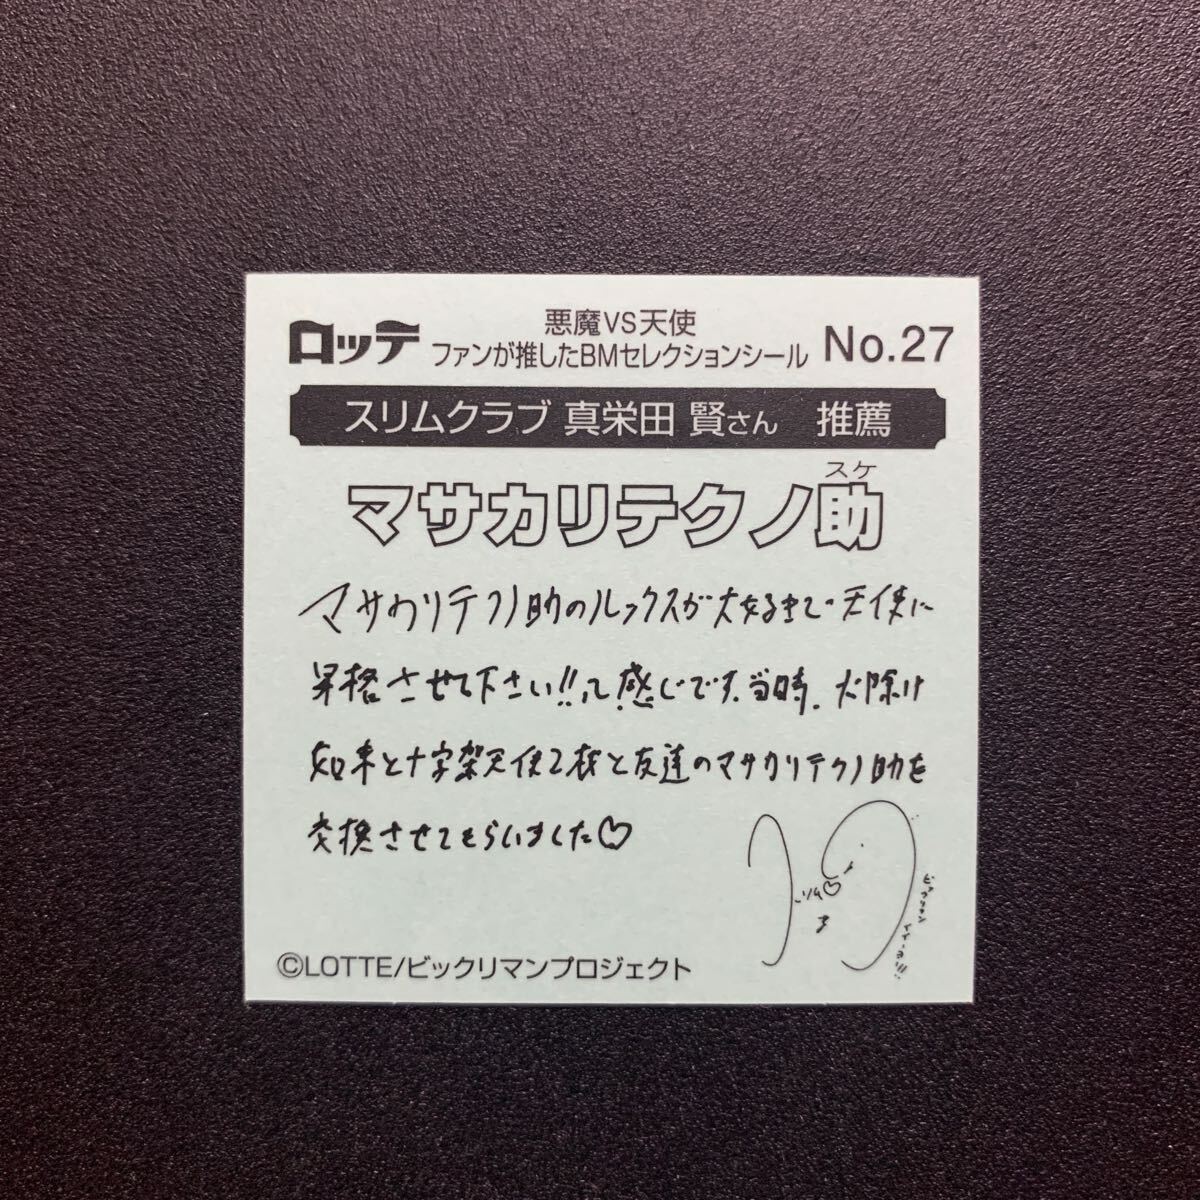 ロッテ
悪魔VS天使
ファンが推したBMセレクションシール
No.27
スリムクラブ 真栄田 賢さん 推薦
スケ
マサカリテクノ助
マサカリテクノ助のルックスが大好きで・天使に
昇格させて下さい!!って感じです。当時、犬除け
如来と十字架天使2枚と友達のマサカリテクノ助を
交換させてもらいました♡
©LOTTE/ビックリマンプロジェクト